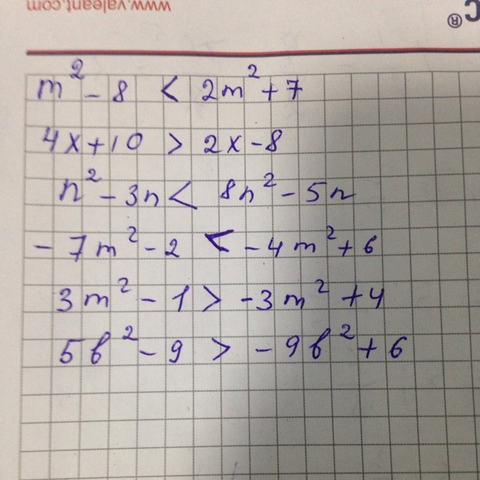 www.valeant.com
®
m² - 8 < 2m² + 7
4x + 10 > 2x - 8
n² - 3n < 8n² - 5n
- 7m² - 2 < - 4m² + 6
3m² - 1 > -3m² + 4
5b² - 9 > - 9b² + 6